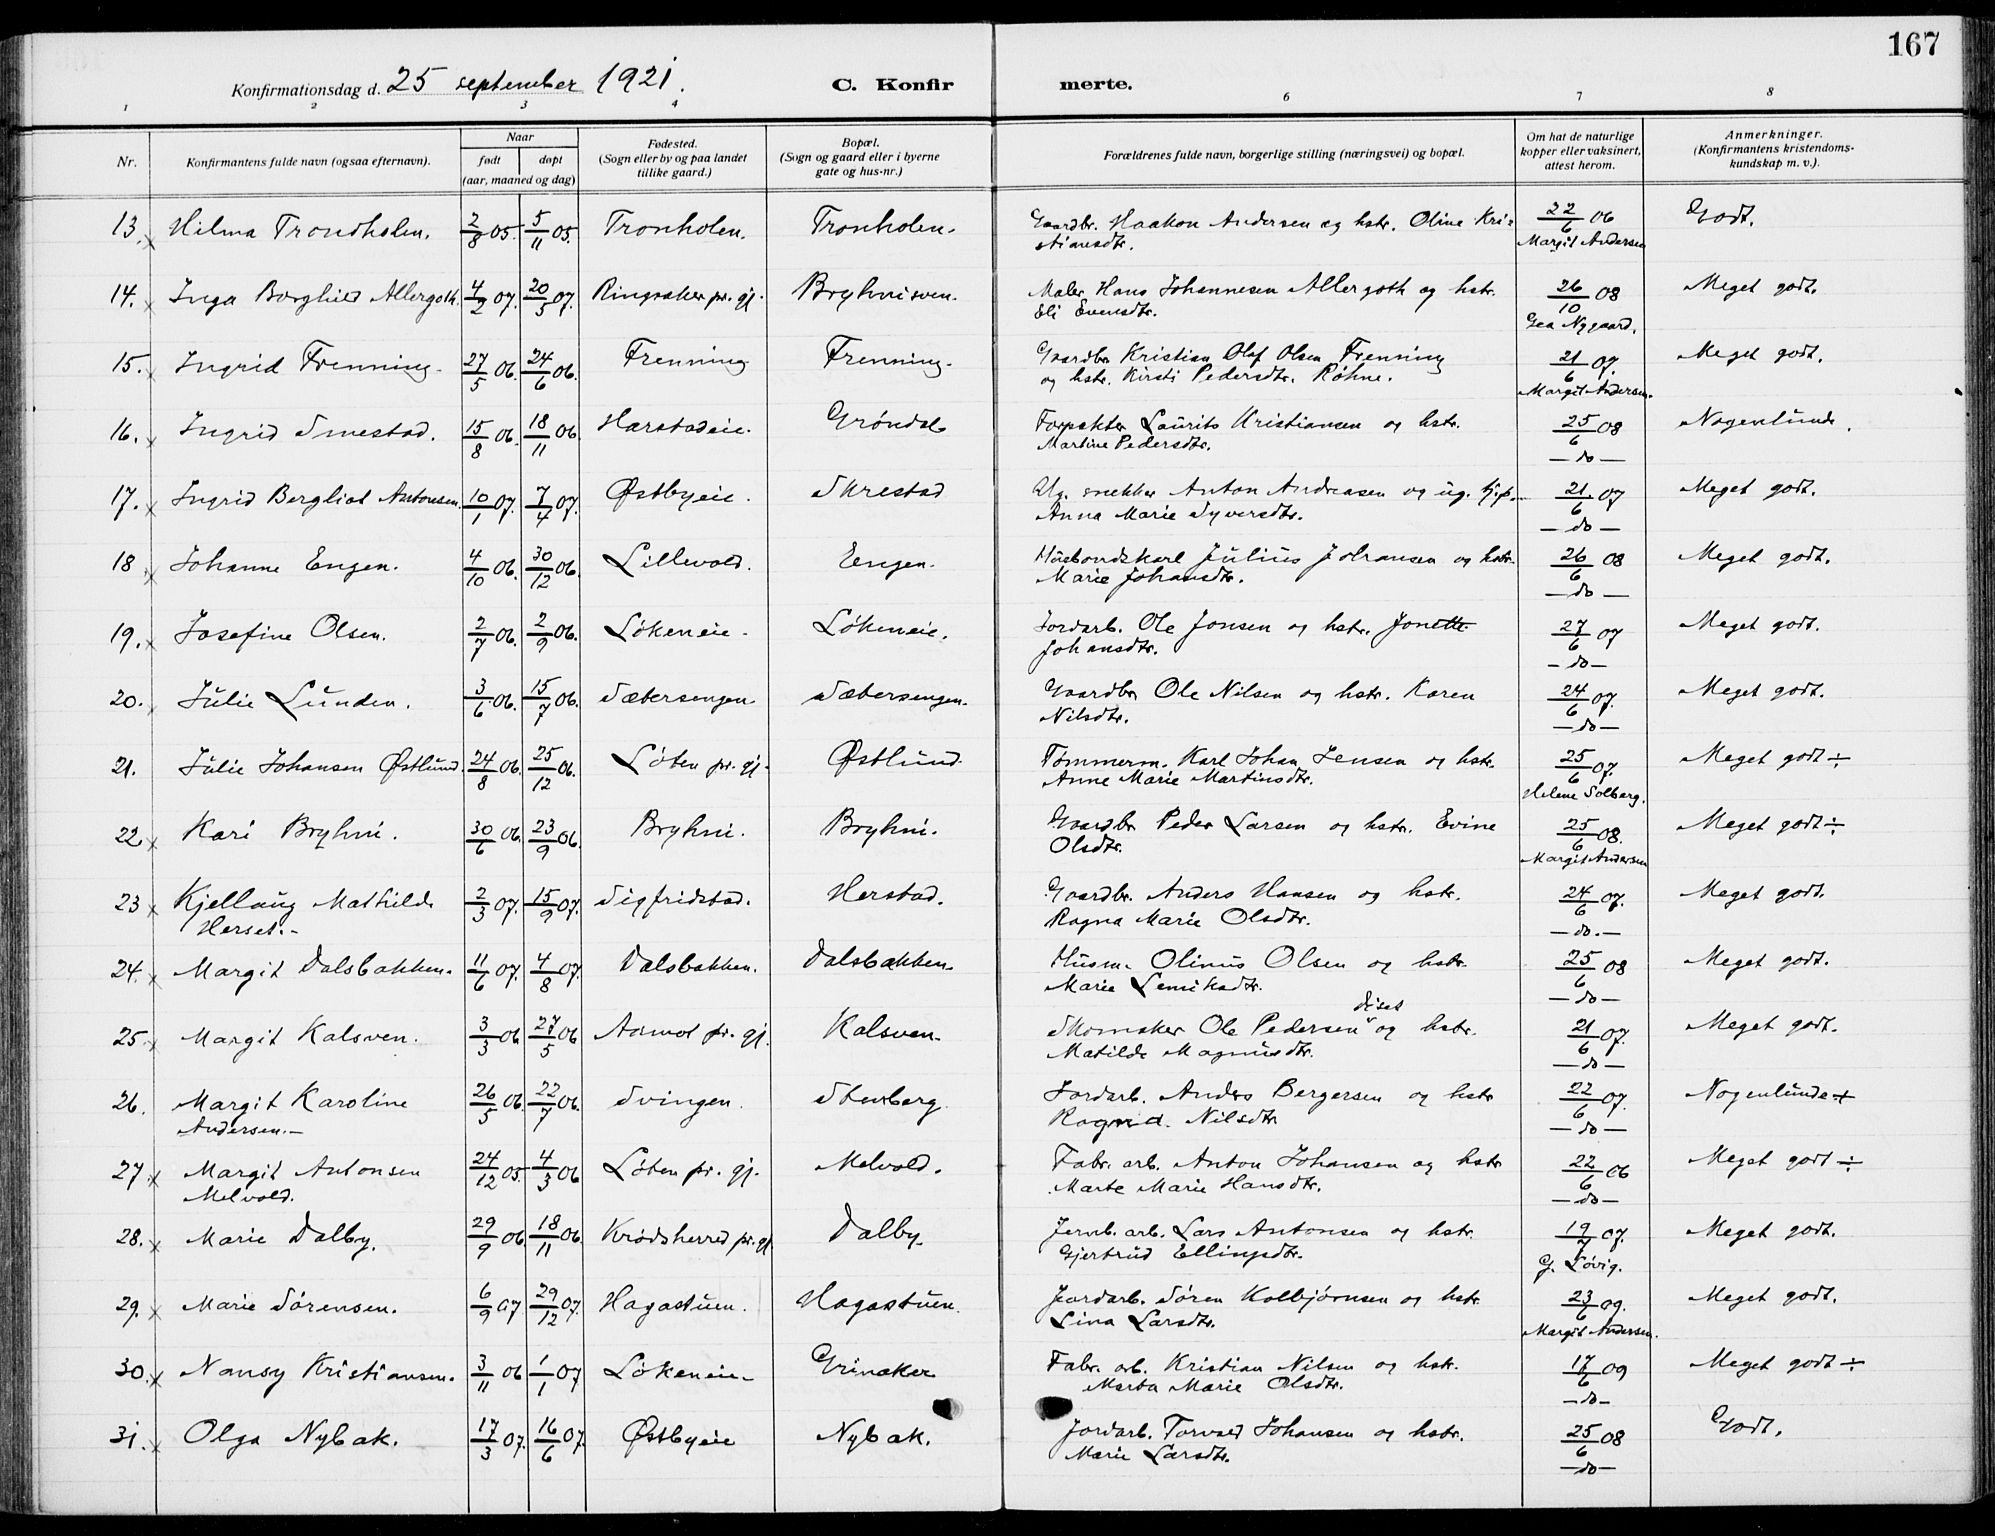 167
Konfirmationsdag d. 25 september 1921.
C. Konfirmerte.
1 2 3 4 6 7 8
Nr.
Konfirmantens fulde navn (ogsaa efternavn).
Naar
født
døpt
(aar, maaned og dag)
Fødested.
(Sogn eller by og paa landet
tillike gaard.)
Bopæl.
(Sogn og gaard eller i byerne
gate og hus-nr.)
Forældrenes fulde navn, borgerlige stilling (næringsvei) og bopæl.
Om hat de naturlige
kopper eller vaksinert,
attest herom.
Anmerkninger.
(Konfirmantens kristendoms-
kundskap m. v.).
13. Hilma Trondholen. 2/8 05. 5/11 05. Tronholen. Tronholen. Gaardbr. Haakon Andersen og hstr. Oline Kri- 22/6 06 Godt.
stiansdtr. Margit Andersen
14. Inga Borghild Allergoth. 4/2 07. 20/5 07. Ringsaker pr. gj. Bryhnisven. Maler Hans Johannesen Allergoth og hstr. 26/10 08 Meget godt.
Eli Evensdtr. Gea Nygaard.
15. Ingrid Frenning. 27/5 06. 24/6 06. Frenning Frenning. Gaardbr. Kristian Olaf Olsen Frenning 21/6 07. Meget godt.
og hstr. Kirsti Pedersdtr. Røhne. Margit Andersen.
16. Ingrid Smestad. 15/8 06. 18/11 06. Harstadeie. Grøndal Forpakter Laurits Kristiansen og hstr. 25/6 08 Nogenlunde.
Martine Pedersdtr. — do —
17. Ingrid Bergliot Antonsen. 10/1 07. 7/4 07. Østbyeie. Skrestad Ug. snekker Anton Andreasen og ug. tj.p. 21/6 07 Meget godt.
Anna Marie Syversdtr. — do —
18. Johanne Engen. 4/10 06. 30/12 06. Lillevold. Eengen. Husbondskarl Julius Johansen og hstr. 26/6 08 Meget godt.
Marie Johansdtr. — do —
19. Josefine Olsen. 2/7 06. 2/9 06. Løkeneie. Løkeneie. Jordarb. Ole Jonsen og hstr. Jonette 27/6 07 Meget godt.
Johansdtr. — do —
20. Julie Lunden. 3/6 06. 15/7 06. Sæbersengen. Sæbersengen. Gaardbr. Ole Nilsen og hstr. Karen 24/6 07. Meget godt.
Nilsdtr. — do —
21. Julie Johansen Østlund. 24/8 06. 25/12 06. Løten pr. gj. Østlund. Tømmerm. Karl Johan Jensen og hstr. 25/6 07. Meget godt ÷
Anne Marie Martinsdtr. Helene Solberg.
22. Kari Bryhni. 30/6 06. 23/9 06. Bryhni. Bryhni. Gaardbr. Peder Larsen og hstr. Evine 25/6 08. Meget godt ÷
Olsdtr. Margit Andersen
23. Kjellaug Mathilde 2/3 07. 15/9 07. Sigfridstad. Herstad. Gaardbr. Anders Hansen og hstr. 24/6 07. Meget godt.
Herset.- Ragna Marie Olsdtr. — do. —
24. Margit Dalsbakken. 11/6 07. 4/8 07. Dalsbakken. Dalsbakken. Husm. Olinus Olsen og hstr. 25/6 08 Meget godt.
Marie Lemikadtr. — do —
25. Margit Kalsven. 3/3 06 27/5 06 Aamot pr. gj. Kalsven. Skomaker Ole Pedersen Diset og hstr. 21/6 07. Meget godt.
Matilde Magnusdtr. — do —
26. Margit Karoline 26/5 06. 22/7 06. Svingen. Stenberg. Jordarb. Anders Bergersen og hstr 22/6 07. Nogenlunde +
Andersen.— Nilsdtr — do —
27. Margit Antonsen 24/12 05. 4/3 06 Løten pr. gj. Melvold. Fabr. arb. Anton Johansen og hstr 22/6 06 Meget godt ÷
Melvold. Marte Marie Hansdtr. — do —
28. Marie Dalby. 29/9 06. 18/11 06. Krødsherred pr. gj. Dalby. Jernb. arb. Lars Antonsen og hstr. 19/7 07. Meget godt.
Gjertrud Ellingsdtr. G. Løvig.
29. Marie Sørensen. 6/9 07 29/12 07. Hagastuen. Hagastuen. Jordarb. Søren Kolbjørnsen og hstr. 23/6 09. Meget godt.
Lina Larsdtr. Margit Andersen.
30. Nansy Kristiansen. 3/11 06 1/1 07 Løkeneie. Grinaker Fabr. arb. Kristian Nilsen og hstr. 17/6 09 Meget godt ÷
Marta Marie Olsdtr. — do —
31. Olga Nybak. 17/3 07. 16/6 07. Østbyeie Nybak. Jordarb. Torvald Johansen og hstr. 25/6 08 Godt.
Marie Larsdtr. — do —